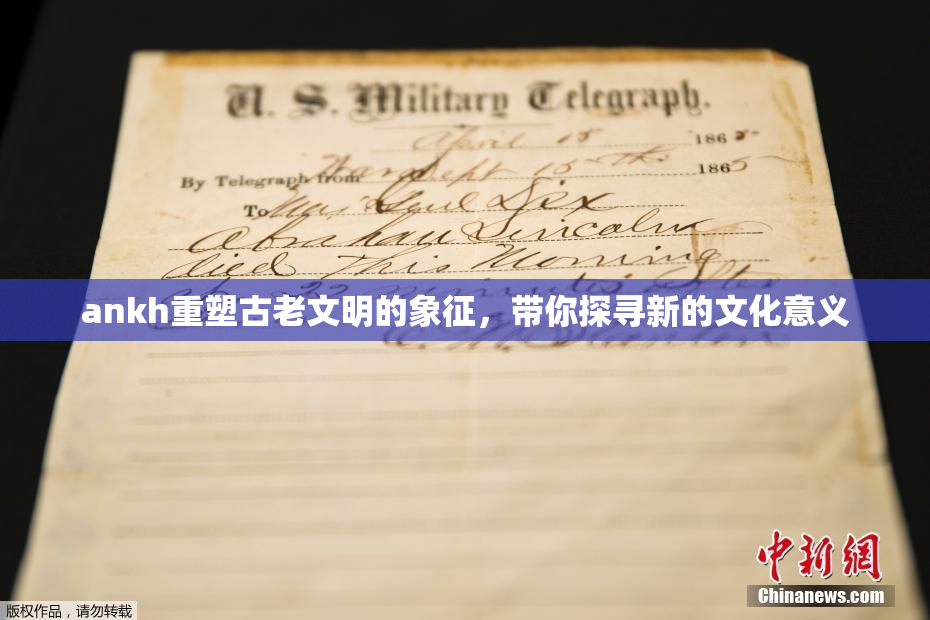 U. S. Military Telegraph.
April 15 1865
By Telegraph from War Dept 15th 1865
To Maj Genl Dix
Abraham Lincoln
died This Morning
at 22 minutes after
ankh重塑古老文明的象征，带你探寻新的文化意义
E. M. Stanton
中新网
Chinanews.com
版权作品，请勿转载